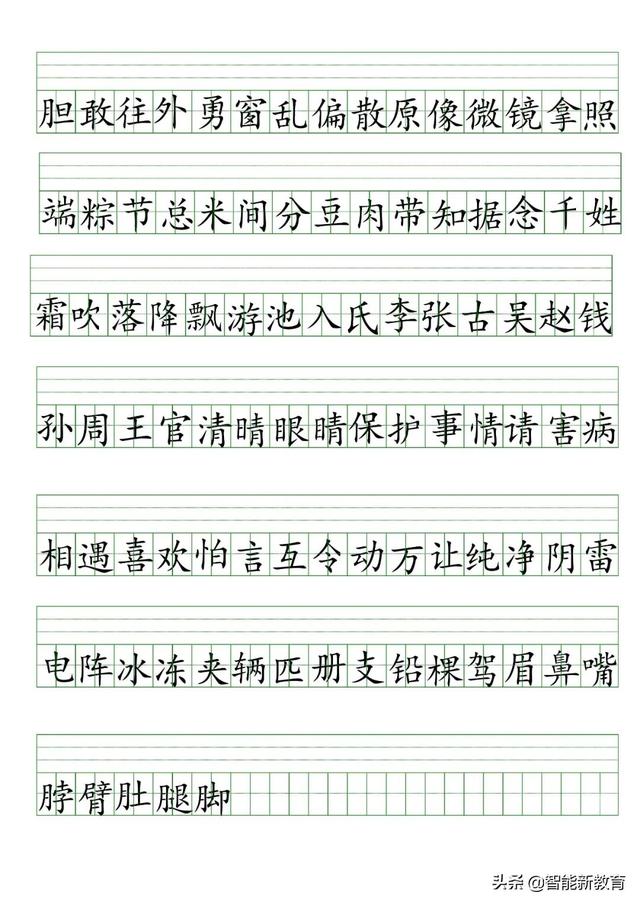 胆敢往外勇窗乱偏散原像微镜拿照
端粽节总米间分豆肉带知据念千姓
霜吹落降飘游池入氏李张古吴赵钱
孙周王官清晴眼睛保护事情请害病
相遇喜欢怕言互令动万让纯净阴雷
电阵冰冻夹辆匹册支铅棵驾眉鼻嘴
脖臂肚腿脚
头条 @智能新教育